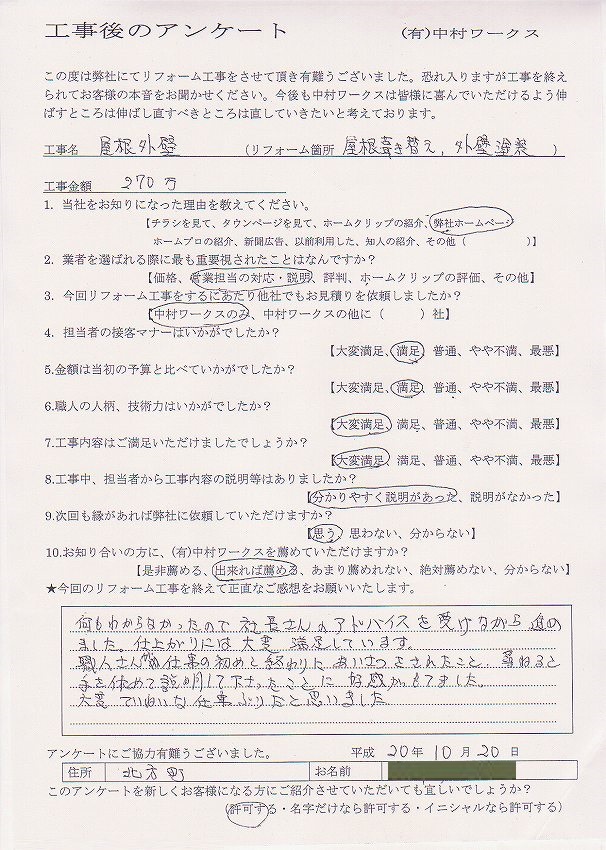 工事後のアンケート (有)中村ワークス
この度は弊社にてリフォーム工事をさせて頂き有難うございました。恐れ入りますが工事を終え
られてお客様の本音をお聞かせください。今後も中村ワークスは皆様に喜んでいただけるよう伸
ばすところは伸ばし直すべきところは直していきたいと考えております。
工事名 屋根外壁 (リフォーム箇所 屋根葺き替え,外壁塗装 )
工事金額 270万
1. 当社をお知りになった理由を教えてください。
【チラシを見て、タウンページを見て、ホームクリップの紹介、弊社ホームペー
ホームプロの紹介、新聞広告、以前利用した、知人の紹介、その他( )】
2. 業者を選ばれる際に最も重要視されたことはなんですか?
【価格、営業担当の対応・説明、評判、ホームクリップの評価、その他】
3. 今回リフォーム工事をするにあたり他社でもお見積りを依頼しましたか?
【中村ワークスのみ、中村ワークスの他に( )社】
4. 担当者の接客マナーはいかがでしたか?
【大変満足、満足、普通、やや不満、最悪】
5.金額は当初の予算と比べていかがでしたか?
【大変満足、満足、普通、やや不満、最悪】
6.職人の人柄、技術力はいかがでしたか?
【大変満足、満足、普通、やや不満、最悪】
7.工事内容はご満足いただけましたでしょうか?
【大変満足、満足、普通、やや不満、最悪】
8.工事中、担当者から工事内容の説明等はありましたか?
【分かりやすく説明があった、説明がなかった】
9.次回も縁があれば弊社に依頼していただけますか?
【思う、思わない、分からない】
10.お知り合いの方に、(有)中村ワークスを薦めていただけますか?
【是非薦める、出来れば薦める、あまり薦めれない、絶対薦めない、分からない】
★今回のリフォーム工事を終えて正直なご感想をお願いいたします。
何もわからなかったので社長さんのアドバイスを受けながら進め
ました。仕上がりには大変満足しています。
職人さんが仕事の初めと終わりにあいさつをされたこと 尋ねると
手を休めて説明して下さったことに好感がもてました。
大変ていねいな仕事ぶりだと思いました
アンケートにご協力有難うございました。 平成 20年 10月 20日
住所 北方町 お名前
このアンケートを新しくお客様になる方にご紹介させていただいても宜しいでしょうか?
(許可する・名字だけなら許可する・イニシャルなら許可する)